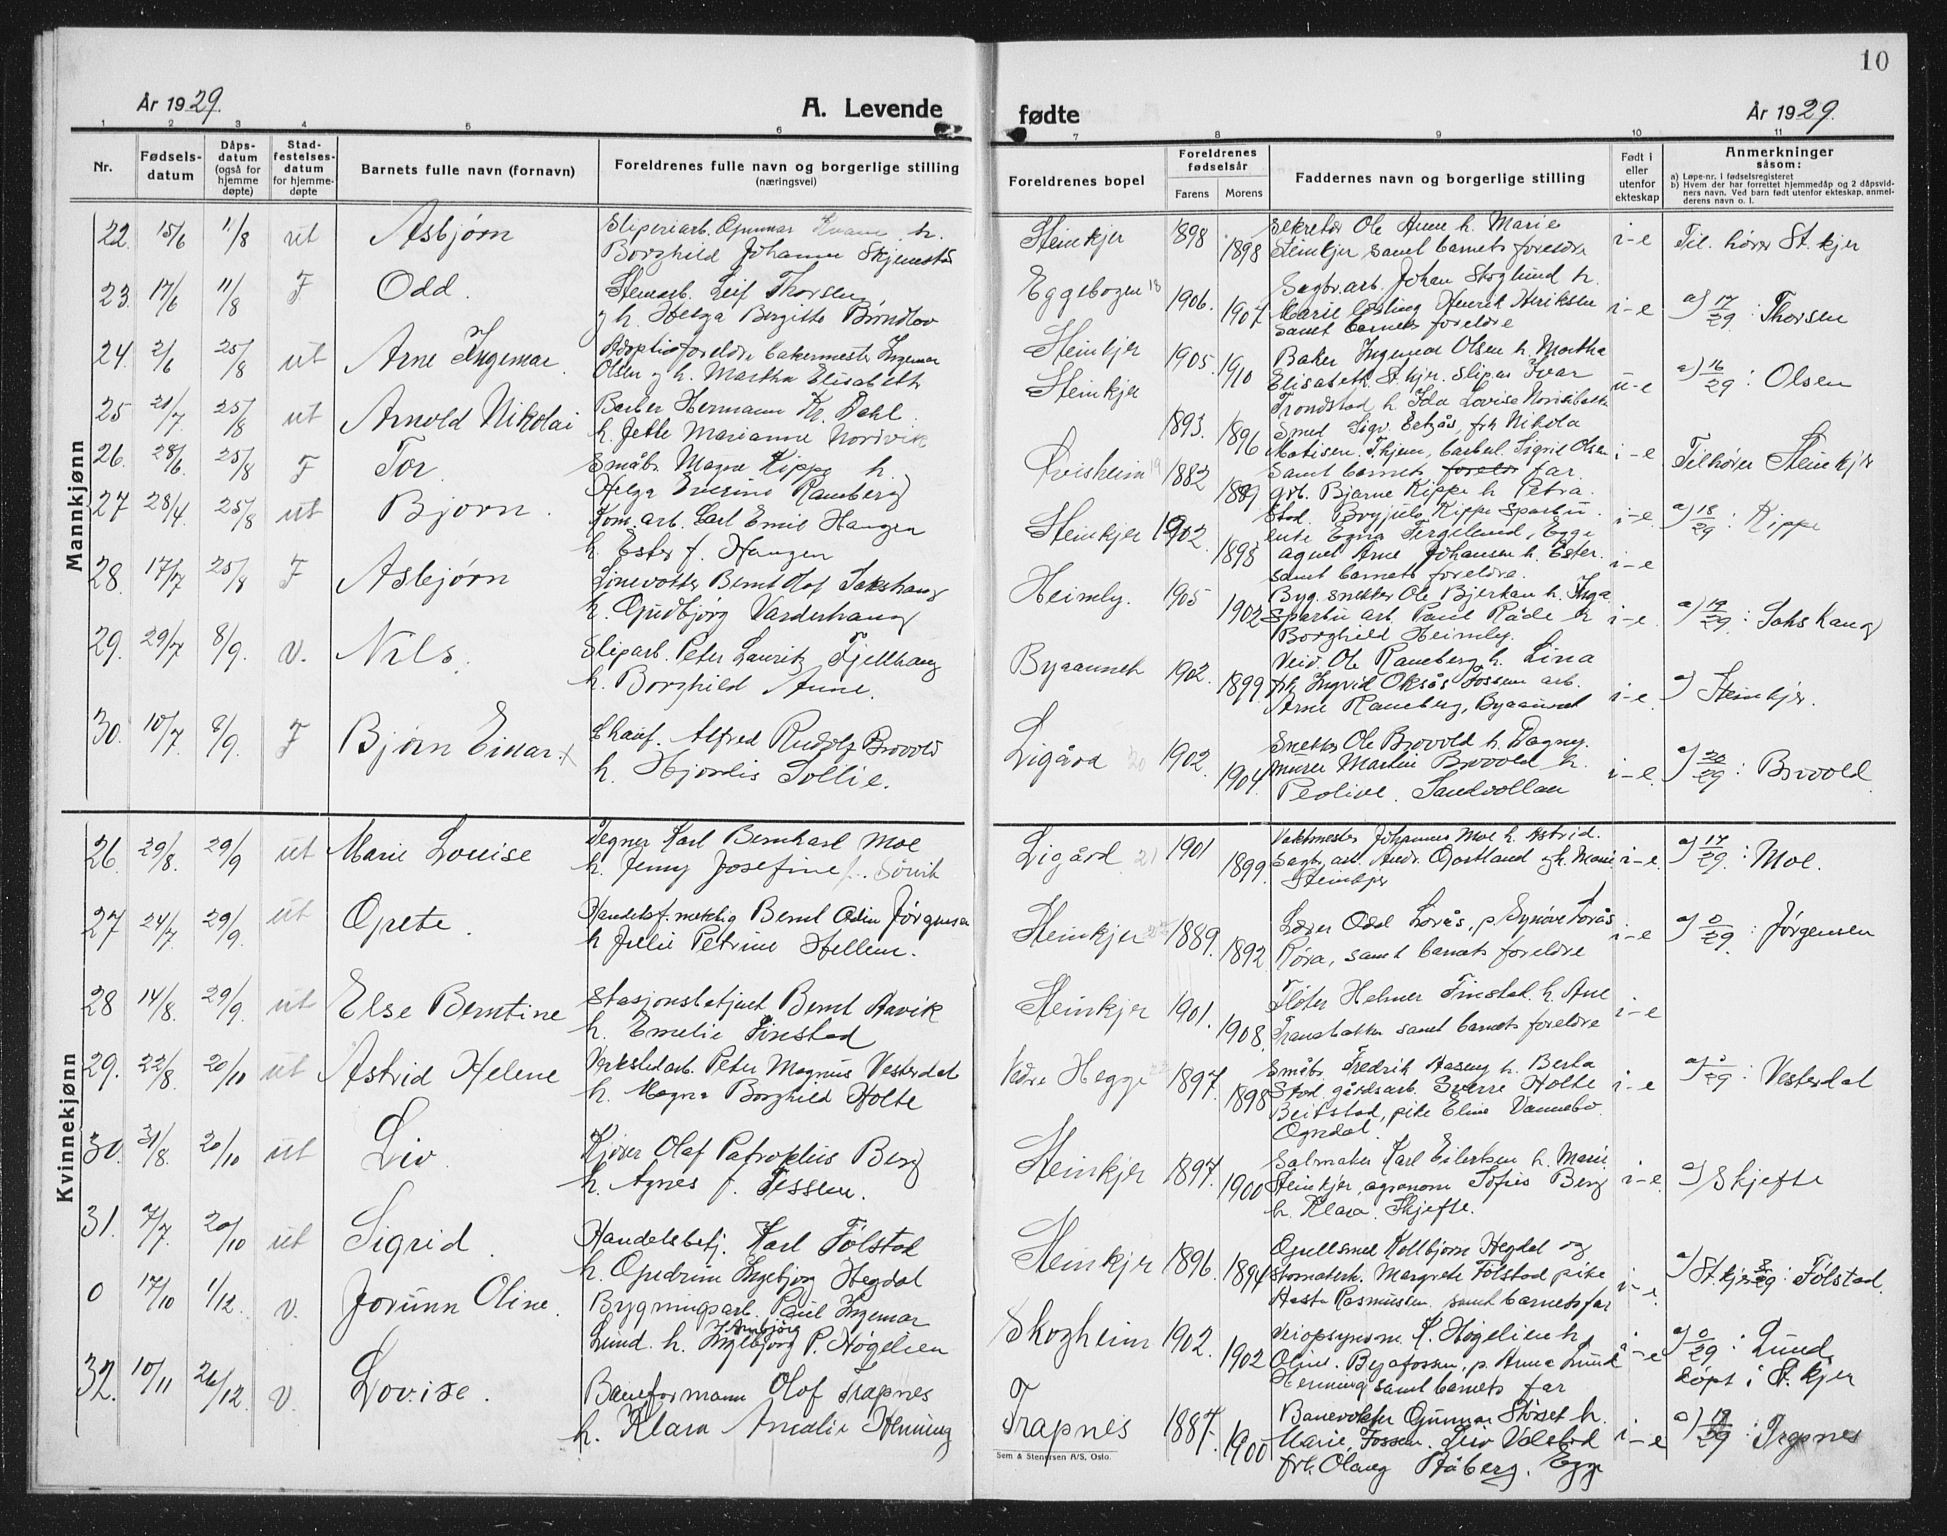 10
År 1929.
A. Levende
fødte
År 1929.
1 2 3 4 5 6 7 8 9 10 11
Nr.
Fødsels-
datum
Dåps-
datum
(også for
hjemme
døpte)
Stad-
festelses-
datum
for hjemme-
døpte
Barnets fulle navn (fornavn)
Foreldrenes fulle navn og borgerlige stilling
(næringsvei)
Foreldrenes bopel
Foreldrenes
fødselsår
Farens Morens
Faddernes navn og borgerlige stilling
Født i
eller
utenfor
ekteskap
Anmerkninger
såsom:
a) Løpe-nr. i fødselsregisteret
b) Hvem der har forrettet hjemmedåp og 2 dåpsvid-
ners navn. Ved barn født utenfor ekteskap, anmel-
derens navn o. l.
Mannkjønn
22. 15/6 11/8 ut Asbjørn
Sliperiarb. Gunnar Kvam h.
Borghild Johanne
Steinkjer 1898 1898
Sekretær Ole Aune h. Marie
Steinkjer samt barnets foreldre
i-e Tilhører St.kjer
23. 17/6 11/8 F Odd.
Stenarb. Leif Thorsen
og h. Helga Bergitte
Eggebogen 18 1906. 1907
Sagbr.arb. Johan Skoglund h.
Marie Henrik Henriksen
samt barnets foreldre
i-e a) 17/29 : Thorsen
24. 2/6 25/8 ut Arne Ingemar.
Adoptivforeldre bakermester Ingemar
Olsen og h. Martha Elisabeth
Steinkjer 1905. 1910
Baker Ingemar Olsen h. Martha
Elisabeth St.kjer. Sliper Ivar
Trondstad h. Ida Lovise
u-e a) 16/29 : Olsen
25 21/7 25/8 ut Arnold Nikolai
Barber Hermann Kr. Dahl.
h. Jette Marianne Nordvik
Steinkjer 1893. 1896
Smed Sigv. frk Nikola
Matisen. Sigrid Olsen
samt barnets far
i-e Tilhører Steinkjer
26. 28/6 25/8 F Tor
Småbr. Magne Kippe h.
Helga Ramberg
Kvisheim 19 1882 1889
grb. Bjarne Kippe h Petra.
Stod. Kippe Sparbu.
i-e a) 18/29 : Kippe
27 28/4 25/8 ut Bjørn.
Kom.arb. Carl Emil Haugen
h. Ester f. Haugen
Steinkjer 1902. 1898
Egge
agent Arne Johansen h. Ester.
samt barnets foreldre.
i-e
28. 17/7 25/8 F Asbjørn
Linevokter Bernt Olof Sakshaug
h. Gudbjørg Varderhaug
Heimly. 1905 1902
Byg.snekker Ole Bjerkan h. Inga
Sparbu arb. Paul Råde h
Borghild Heimly.
i-e. a) 19/29 : Sakshaug
29. 29/7 8/9. v. Nils.
Sliparb. Peter Lauritz Fjellhaug
h. Borghild Aune.
Byaaunet 1902. 1899.
Veiv. Ole Ramberg h. Lina
frk Ingvid Oksås Fossem arb.
Arne Ramberg, Byaaunet
i-e a) Steinkjer.
30. 10/7 8/9. F Bjørn Einar.
Chauf. Alfred Rudolf Brovold
h. Hjordis Sollie.
Ligåra 20 1902. 1904.
Snekker Ole Brovold h. Dagny.
murer Martin Brovold h.
Peoline. Sandvollan
i-e. a) 20/29 : Brovold
Kvinnekjønn
26. 29/8. 29/9 ut Marie Louise
Tegner Karl Bernhard Moe
h. Jenny Josefine f. Sørvik
Ligård 21 1901 1899.
Vaktmester Johannes Moe h. Astrid.
Sagbr.arb. Andr. Gartland og h. Marie
Steinkjer
i-e. a) 17/29 : Moe.
27 24/7 29/9. ut Grete.
Handelsf.mektig Bernt Odin Jørgensen
h Julie Petrine Hellem.
Steinkjer 22 1889. 1892
Lærer Odd Lorås, p. Synøve Lorås
Røra, samt barnets foreldre
i-e a) 0/29 : Jørgensen
28 14/8. 29/9. ut Else Berntine
Stasjonsbetjent Bernt Aavik
h. Emelie Finstad
Steinkjer 1901. 1908.
Fløter Helmer Finstad. h. Ane
Tranabakken samt barnets foreldre
i-e
29. 22/8. 20/10 ut Astrid Helene
Verkstedarb. Peter Magnus Vesterdal
h. Magna Borghild Holte
Vedre Hegge 23 1897. 1898
Småbr. Fredrik Aaseng h. Berta
Stod gårdsarb. Sverre Holte
Beitstad, pike Eline Vannebo.
Ogndal.
i-e a) /29 : Vesterdal
30. 31/8. 20/10 ut Liv.
Kjører Olaf Patroklus Berg
h. Agnes f. Tessem.
Steinkjer 1897. 1900
Salmaker Karl Eilertsen h. Marie
Steinkjer, agronom Tofies Berg
h. Klara. Skjefte.
i-e a) Skjefte
31. 7/7. 20/10 ut Sigrid.
Handelsbetj. Karl Følstad
h. Gudrun Ingebjørg Hegdal
Steinkjer 1896. 1894
Gullsmed Kolbjørn Hegdal og
Margrete Følstad pike
Aasta Rasmussen. samt barnets far
i-e. a) St.kjer 8/29 : Følstad.
0 17/10 1/12. v. Jorunn Oline.
Bygningsarb. Paul Ingemar
Lund. h. Ingebjørg P. Høgelien
Skogheim 1902. 1902
Veiopsynsm. K. Høgelien h.
Oline. Byafossen, p. Anna Lund
Henning samt barnets far
i-e a) 0/29 : Lund,
døpt i St.kjer
32. 10/11 26/12. v. Lovise.
Baneformann Olof Trapnes
h. Klara Amalie Henning
Trapnes 1887. 1900
Banevokter Gunnar Størset h.
Marie, Fossem. Liv Valstad
frk. Olaug Råberg. Egge
i-e a) 19/29 : Trapnes
Sem & Stenersen A/S, Oslo.